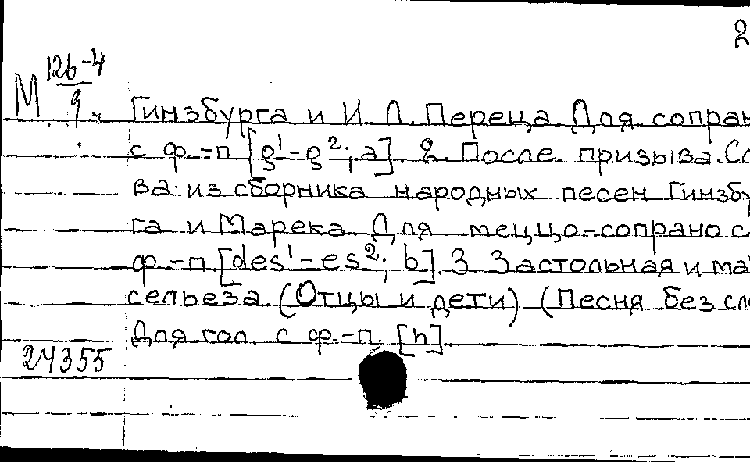 2
М 126-4
9
Гинзбурга и И. Л. Переца. Для сопран
с ф.-п [g¹-g²; a]. 2. После призыва. Сл
ва из сборника народных песен Гинзбу
га и Марека. Для меццо-сопрано с
ф.-п. [des¹-es²; b]. 3. Застольная и ма
сельеза. (Отцы и дети) (Песня без сло
Для гол. с ф.-п. [h].
24355